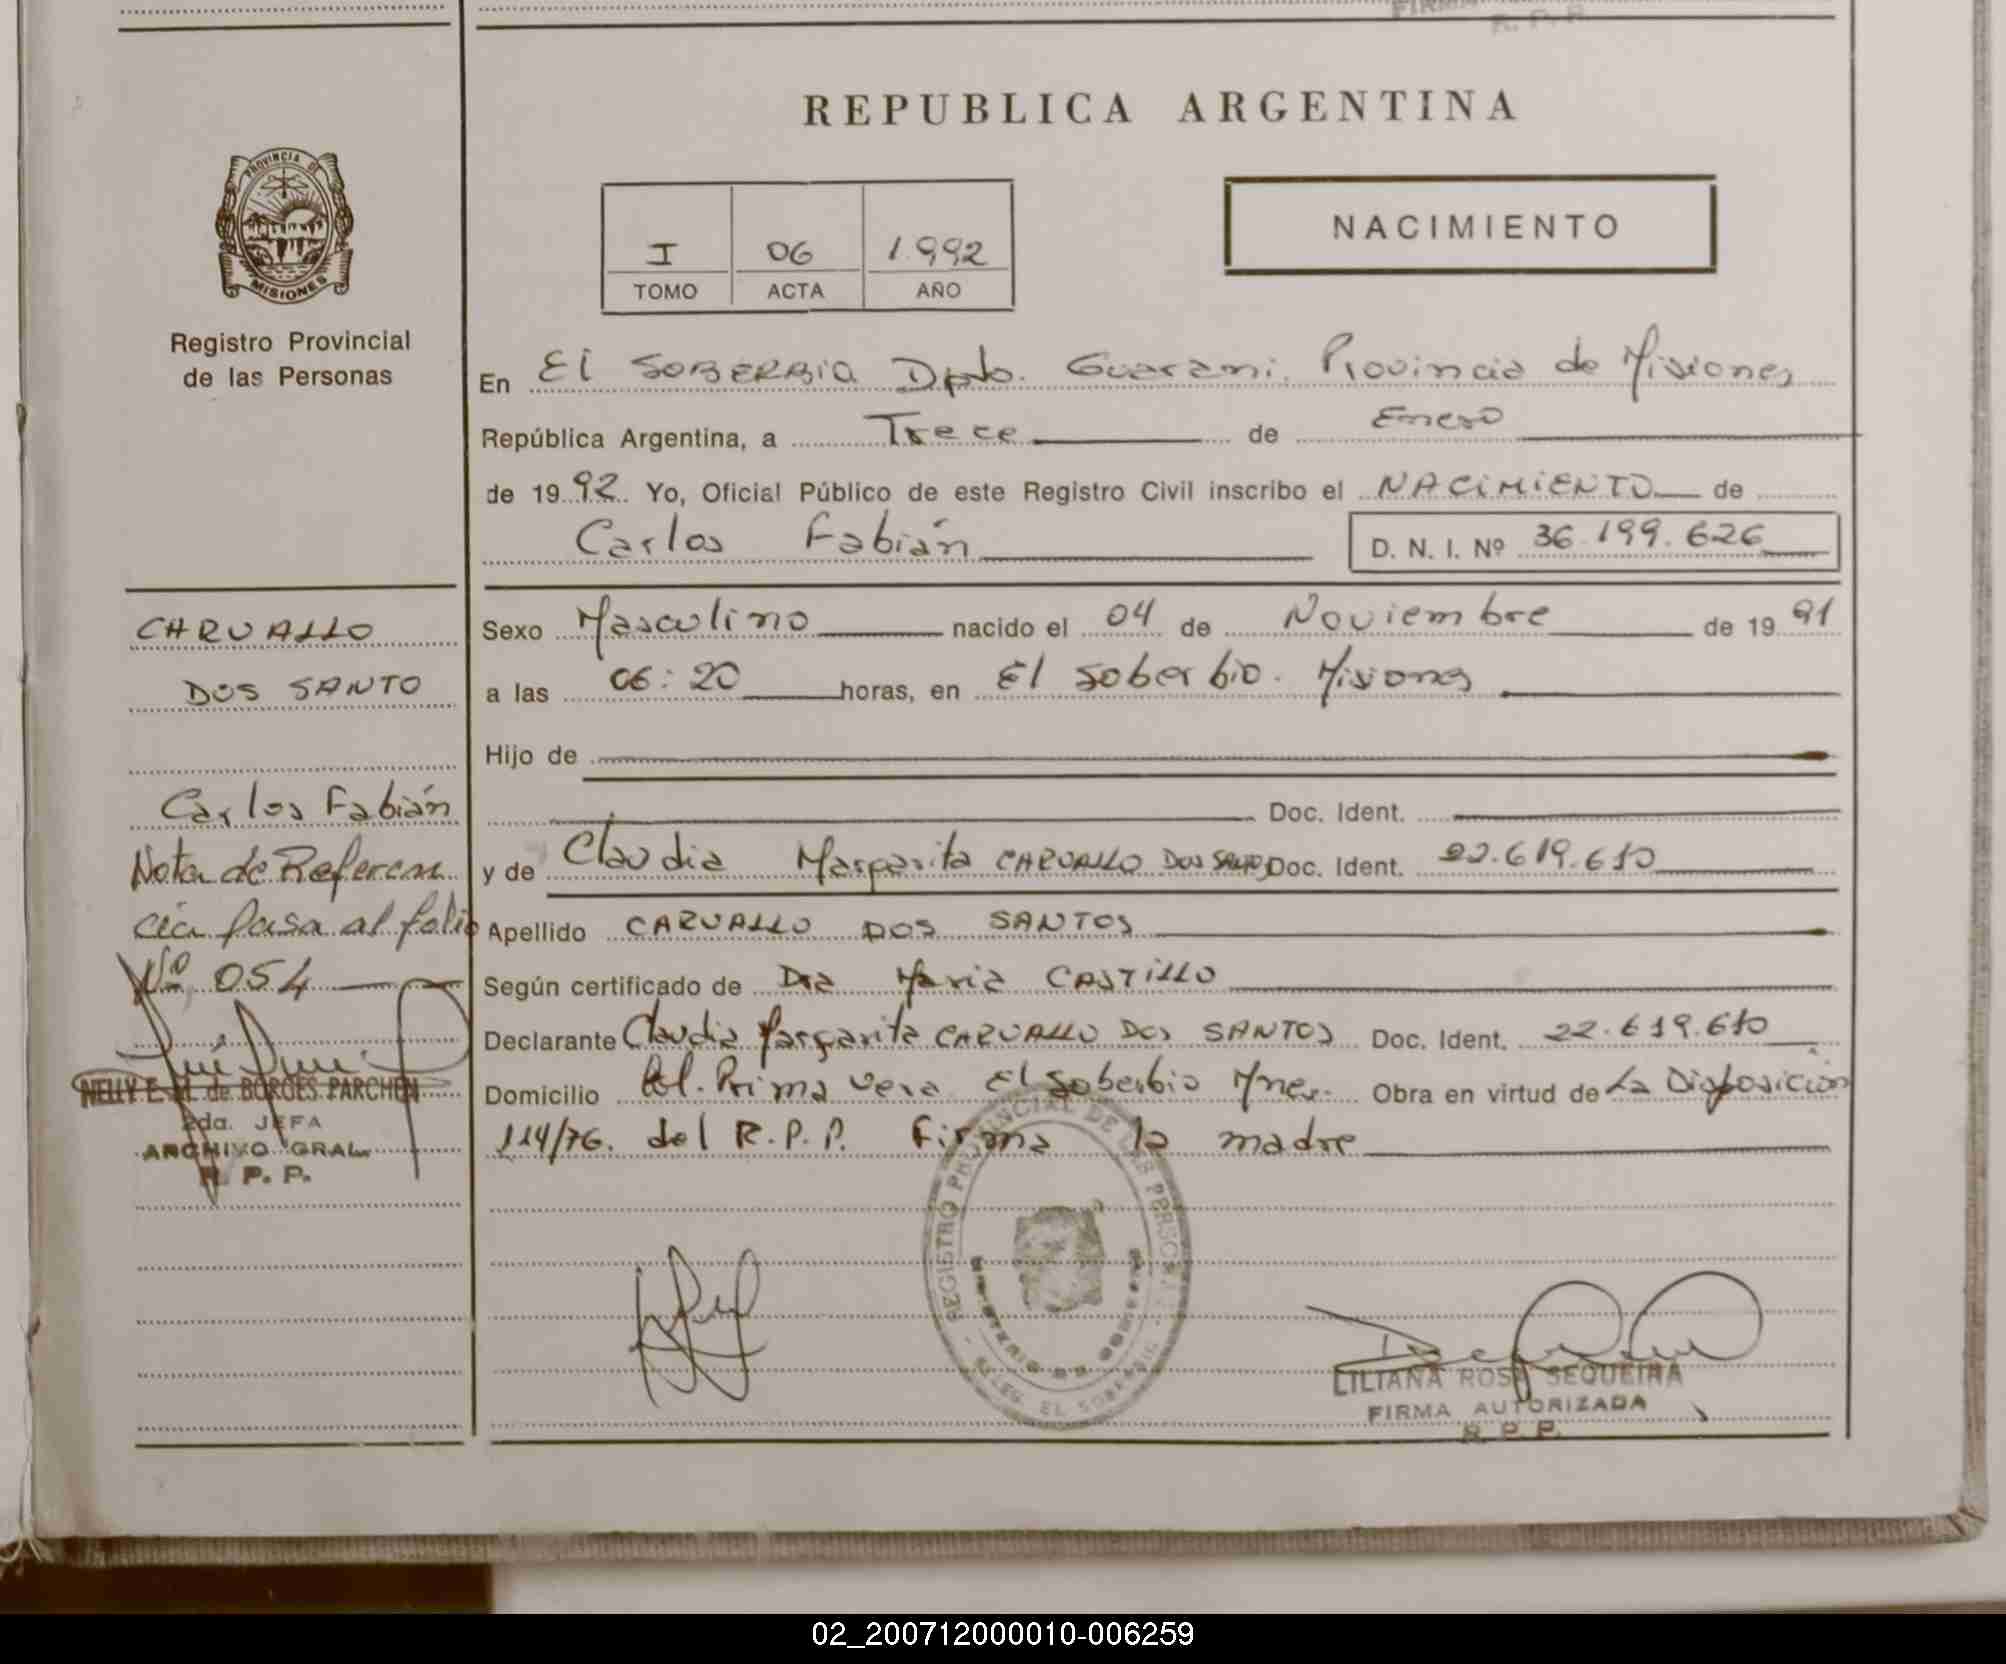 REPUBLICA ARGENTINA
PROVINCIA DE
MISIONES
Registro Provincial
de las Personas
I 06 1.992
TOMO ACTA AÑO
NACIMIENTO
En El SOBERBIA Dpto. Guarani. Provincia de Misiones
República Argentina, a Trece de Enero
de 19 92 Yo, Oficial Público de este Registro Civil inscribo el NACIMIENTO de
Carlos Fabián D. N. I. Nº 36.199.626
CARVALLO
DOS SANTO
Carlos Fabián
Nota de Referen
cia pasa al folio
Nº 054
NELLY E. M. de BORGES PARCHEN
2da. JEFA
ARCHIVO GRAL.
R. P. P.
Sexo Masculino nacido el 04 de Noviembre de 19 91
a las 06:20 horas, en El Soberbio. Misiones
Hijo de
Doc. Ident.
y de Claudia Margarita CARVALLO DOS SANTOS Doc. Ident. 22.619.610
Apellido CARVALLO DOS SANTOS
Según certificado de Dra Maria CASTILLO
Declarante Claudia Margarita CARVALLO DOS SANTOS Doc. Ident. 22.619.610
Domicilio Col. Prima vera El Soberbio Mnes. Obra en virtud de La Disposición
114/76. del R.P.P. Firma la madre
REGISTRO PROVINCIAL DE LAS PERSONAS
EL SOBERBIO
LILIANA ROSA SEQUEIRA
FIRMA AUTORIZADA
R. P. P.
02_200712000010-006259